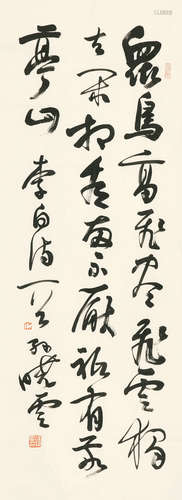 眾鳥高飛盡孤雲獨
去閒相看兩不厭祇有敬
亭山 李白詩一首 孫曉雲